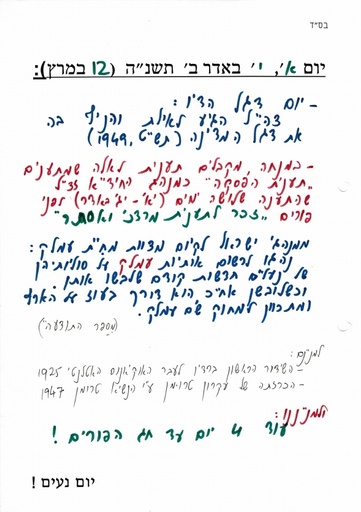 בס״ד
יום א׳, י׳ באדר ב׳ תשנ״ה (12 במרץ):
- יום דגל הדיו:
צה״ל הגיע לאילת והניף בה
את דגל המדינה (תש״ט, 1949)
- במנחה, מקבלים תענית לאלה שמתענים
"תענית הפסקה" כמנהג החיד״א זצ״ל
שהתענה שלושה ימים (י״א-י״ג באדר) לפני
פורים "זכר לתענית מרדכי ואסתר"
ממנהגי ישראל לקיום מצוות מחיית עמלק:
נהגו לרשום אותיות עמלק על סוליותיהן
של נעליים חדשות קודם שלבשו אותן.
וכשלובשן אח״כ הוא דורך בעוז על הארץ
ומתכוון למחוק שם עמלק.
(מספר התודעה)
למנינם:
- השידור הראשון ברדיו לעבר האוקיאנוס האטלנטי 1925
- הכרזתה של עקרון טרומן ע״י הנשיא טרומן 1947
ולמניננו:
עוד 4 יום עד חג הפורים!
יום נעים!